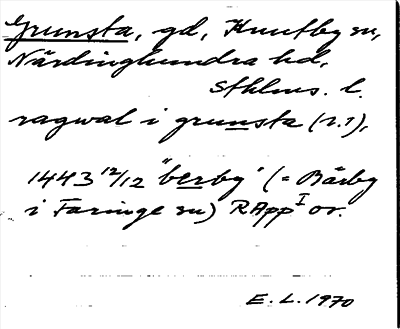 Grunsta, gd, Knutby sn,
Närdinghundra hd,
Sthlms. l.
ragwal i grunsta (r.1),
1443 12/12 "berby" (= Bärby
i Faringe sn) RApp I or.
E. L. 1970